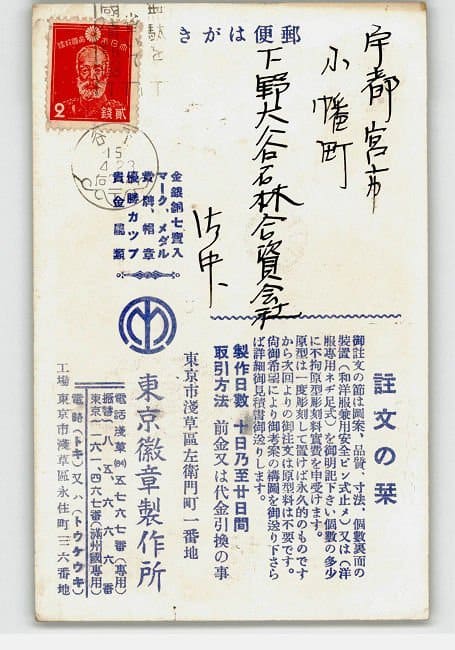 郵便はがき
宇都宮市
小幡町
下野大谷石材合資会社
御中
大日本帝國郵便
貳錢
2
下谷
15
4
23
金銀銅七寶入
マーク、メダル
賞牌、帽章
優勝カツプ
貴金屬類
註文の栞
御註文の節は圖案、品質、寸法、個數裏面の
裝置（和洋服兼用安全ピン式止メ）又は（洋
服專用ネヂ足式）を御明記下さい個數の多少
に不拘原型彫刻料實費を申受けます。
原型は一度彫刻して置けば永久的のものです
から次回よりの御注文は原型料は不要です。
尚御希望により御考案の構圖を御送り下さら
ば詳細御見積書御送りします。
製作日數 十日乃至廿日間
取引方法 前金又は代金引換の事
東京市淺草區左衞門町一番地
東京徽章製作所
電話淺草(84)五七六七番（專用）
振替
東京 一二六、四六七番（滿州國專用）
電略（トキ）又ハ（トウケウキ）
工場 東京市淺草區永住町三六番地